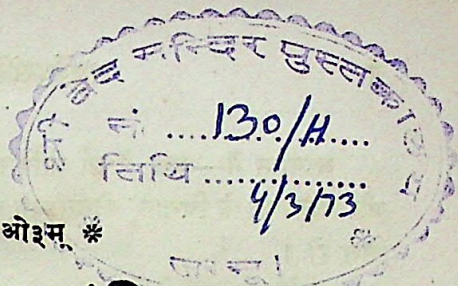 श्री वेद मन्दिर पुस्तकालय
नं .....130/H.....
तिथि ..............
4/3/73
ओ३म् *
जम्मू ।